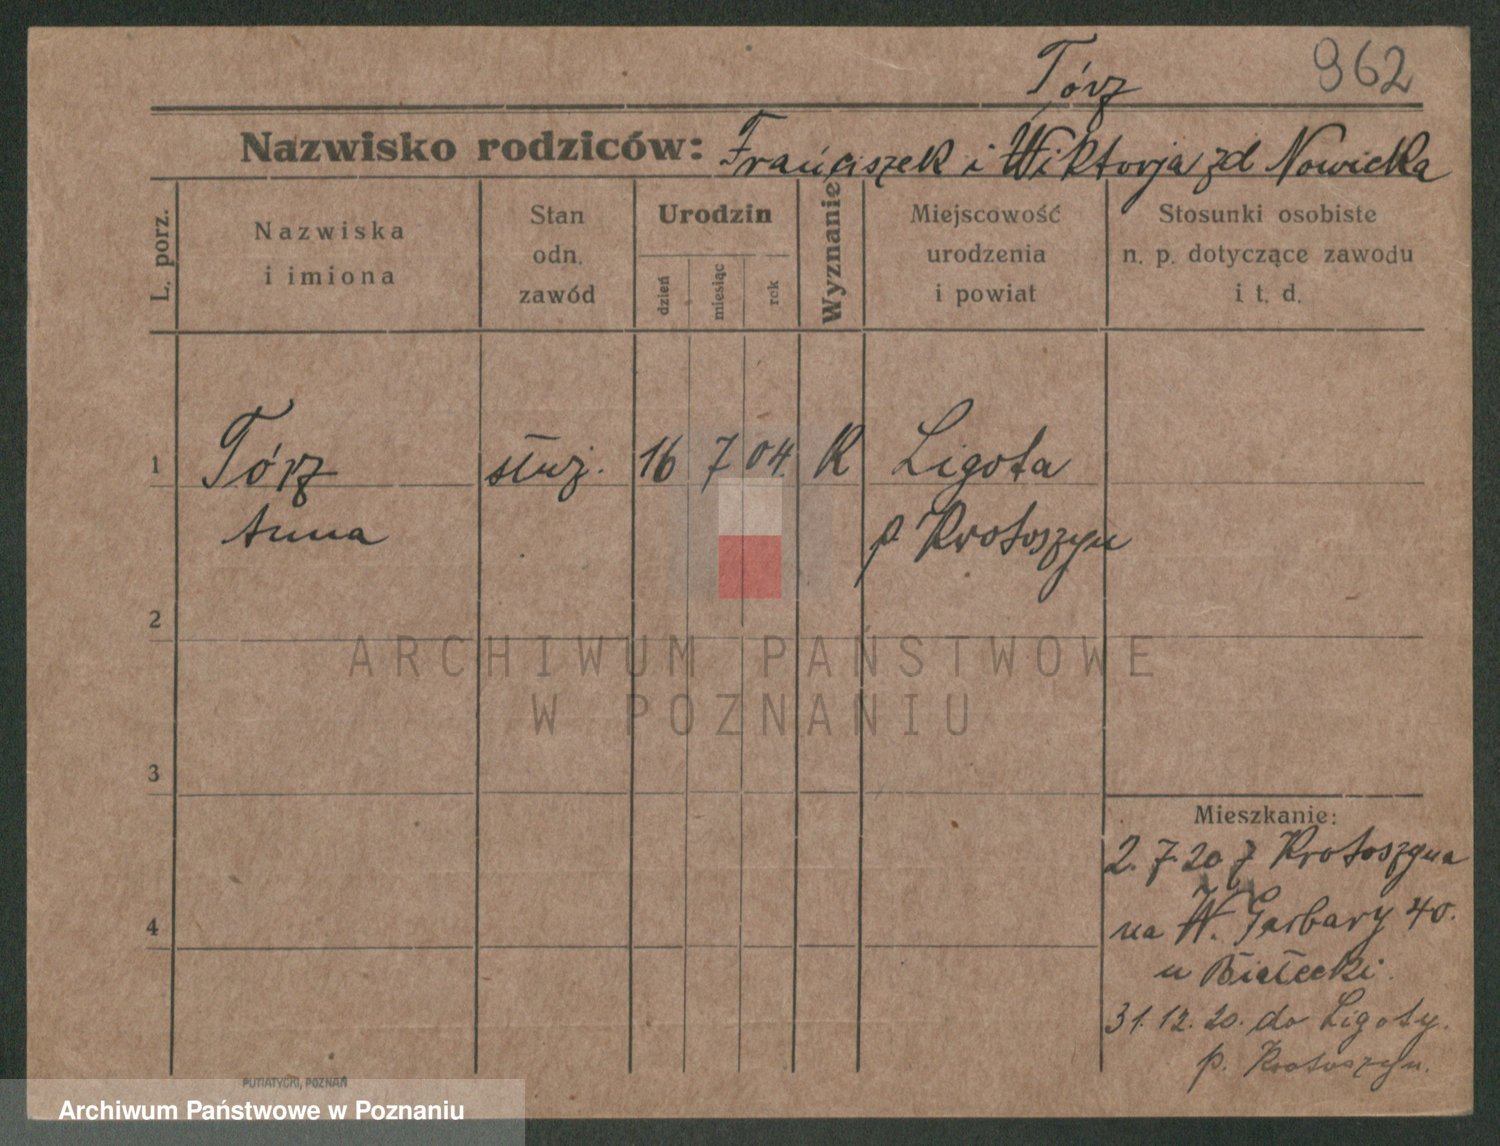 962
Tórz
Nazwisko rodziców: Franciszek i Wiktorja zd Nowicka
L. porz.
Nazwiska
i imiona
Stan
odn.
zawód
Urodzin
dzień
miesiąc
rok
Wyznanie
Miejscowość
urodzenia
i powiat
Stosunki osobiste
n. p. dotyczące zawodu
i t. d.
1 Tórz służ. 16 7 04. R Ligota
Anna p Krotoszyn
2
3
4
Mieszkanie:
2. 7. 20 z Krotoszyna
na W. Garbary 40.
u Białecki.
31. 12. 20. do Ligoty.
p. Krotoszyn.
ARCHIWUM PAŃSTWOWE
W POZNANIU
PUTIATYCKI, POZNAŃ
Archiwum Państwowe w Poznaniu